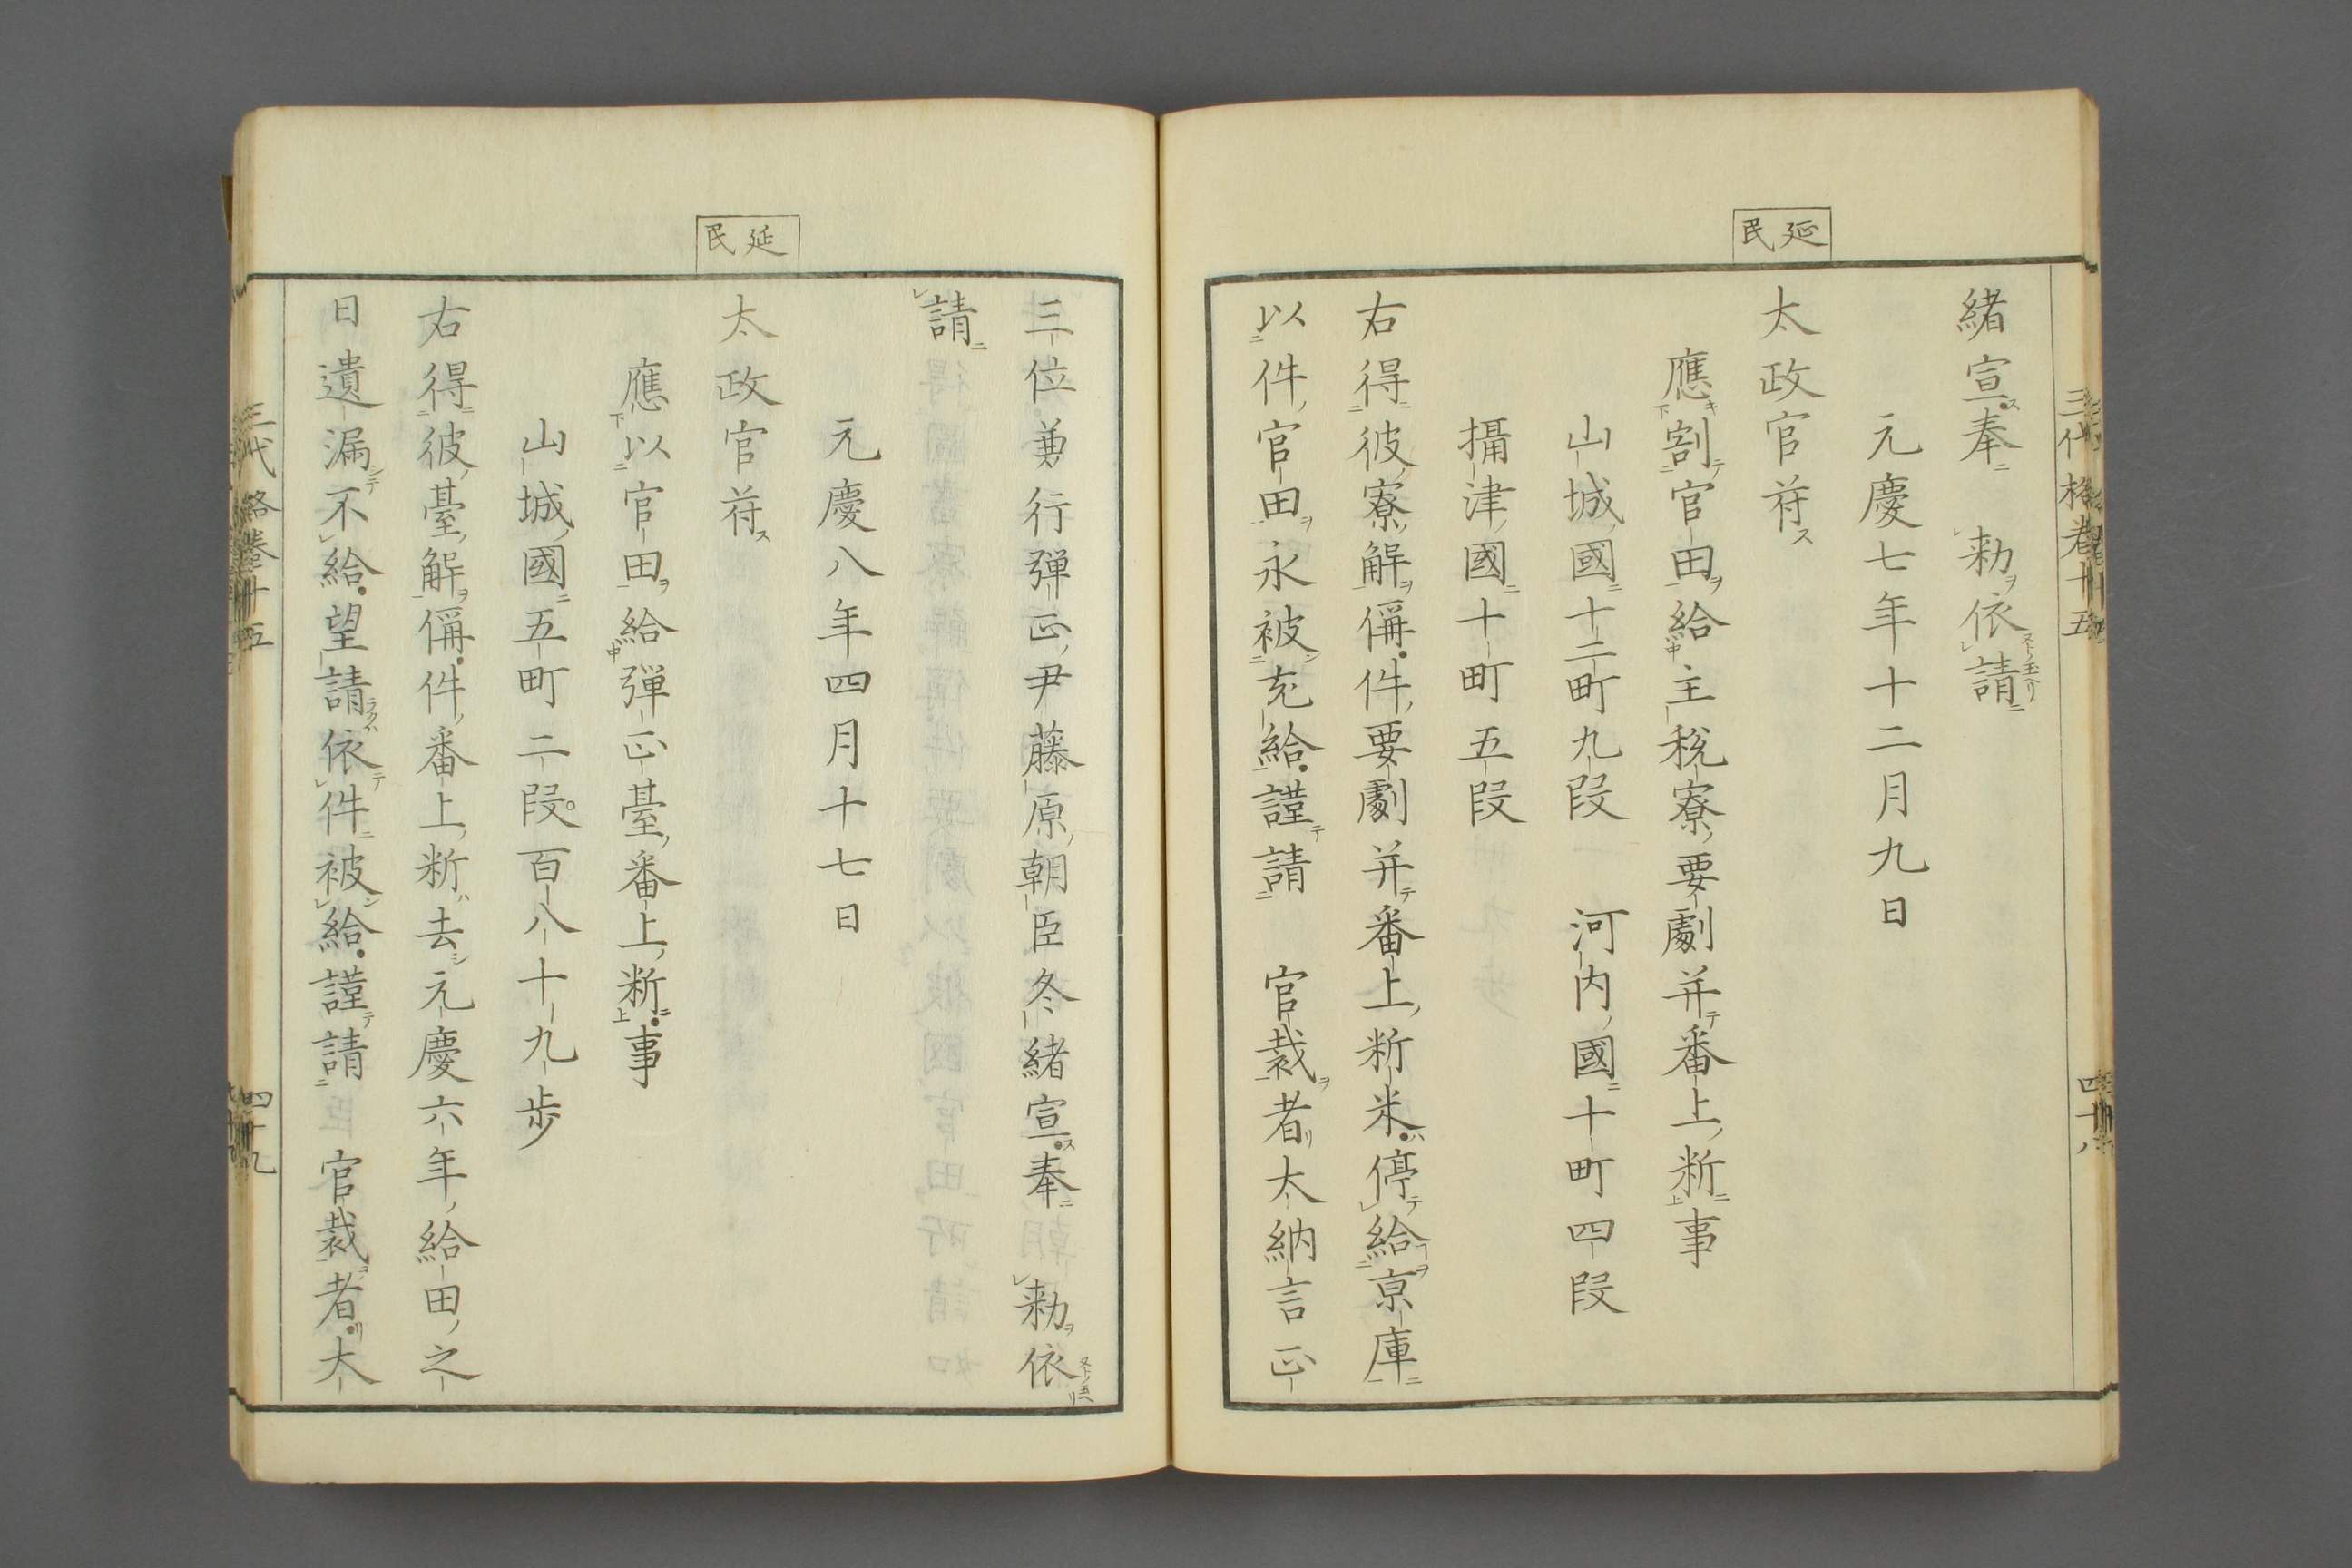 三代格卷十五 四十八
延民
緒宣奉 勅依請
元慶七年十二月九日
太政官符
應割官田給主税寮要劇并番上䉼事
山城國十二町九段 河内國十町四段
攝津國十町五段
右得彼寮解偁件要劇并番上䉼米停給京庫
以件官田永被充給謹請 官裁者大納言正
三位兼行弾正尹藤原朝臣冬緒宣奉 勅依
請
元慶八年四月十七日
延民
太政官符
應以官田給弾正臺番上䉼事
山城國五町二段百八十九歩
右得彼臺解偁件番上䉼去元慶六年給田之
日遺漏不給望請依件被給謹請 官裁者大
三代格卷十五 四十九